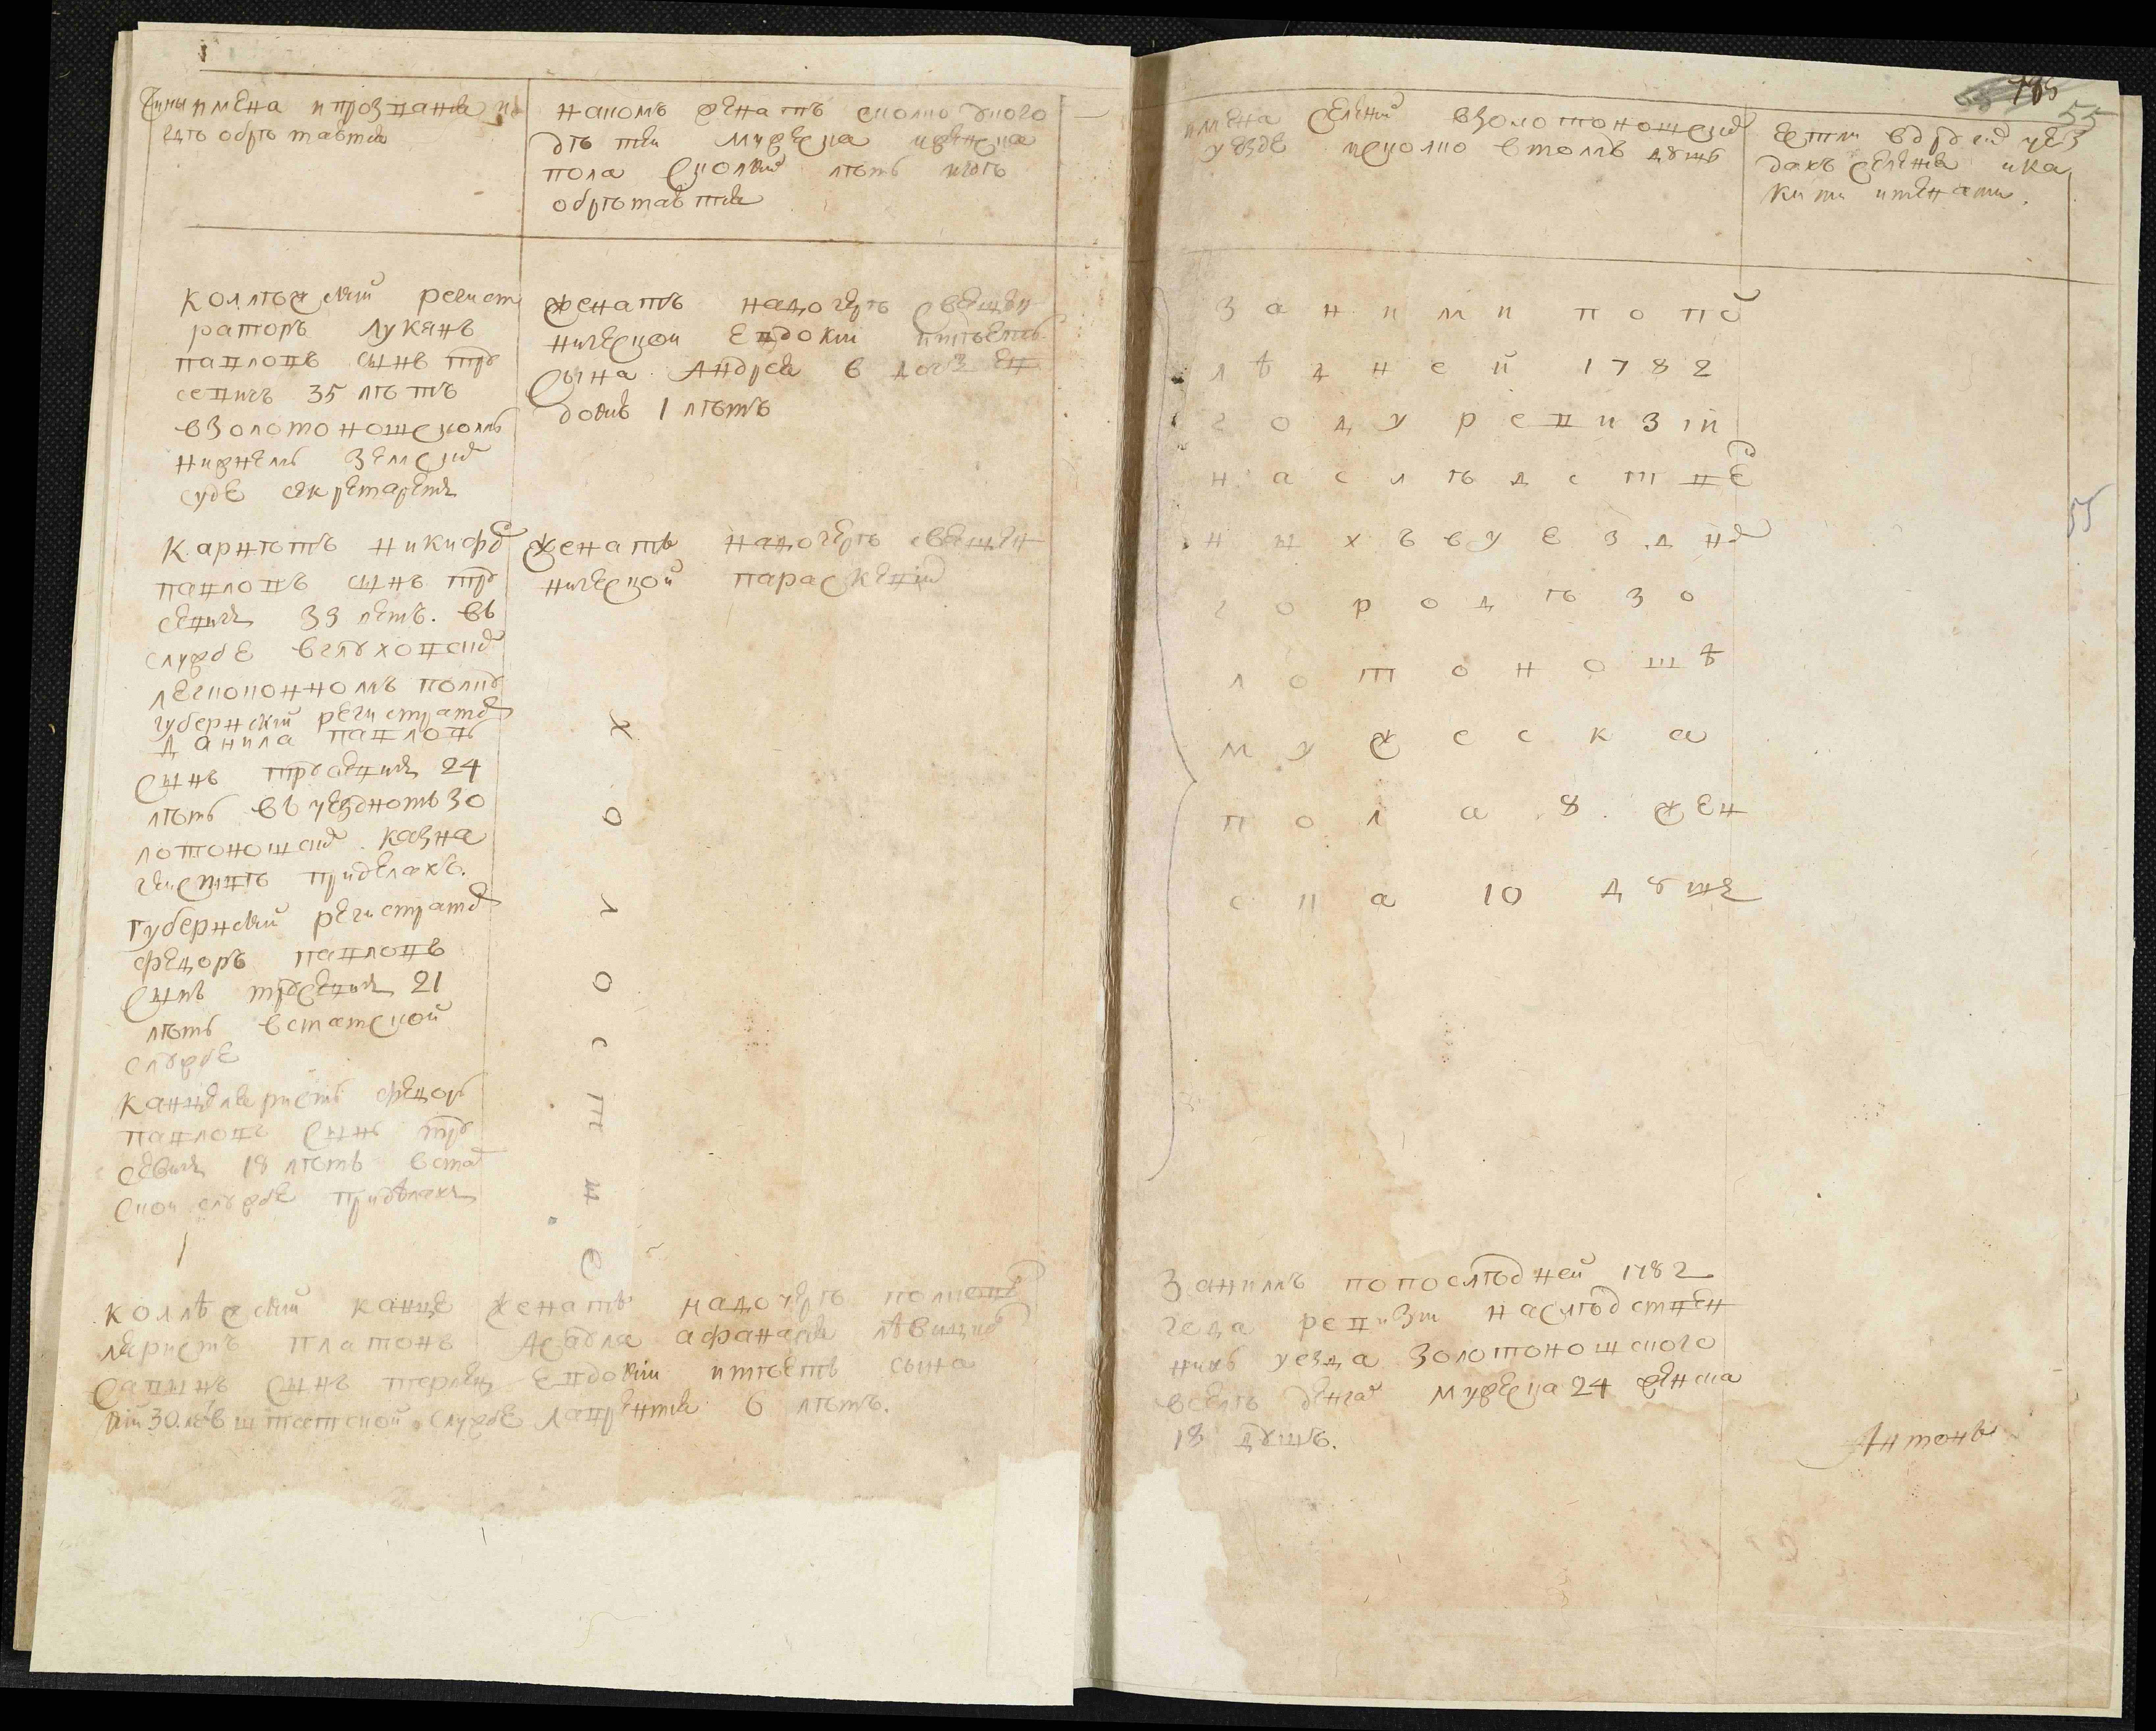 185
55
Чины имена и прозвания ихъ
гдѣ обрѣтаются
на комъ женатъ сколко у кого
дѣтей мужеска и женска
пола сколкихъ лѣтъ и гдѣ
обрѣтаются
имена селений в золотоношском
уезде и сколко в томъ душъ
естли в других уез
дахъ селения и ка
кими именами.
коллѣжский регист
раторъ Лукянъ
павловъ сынъ тру
севичъ 35 лѣтъ
в золотоношскомъ
нижнемъ земском
суде секретаремъ
женатъ на дочерѣ священ
нической евдокии имѣетъ
сына Андрея в дочь ев
докию 1 лѣтъ
Карнѣтъ никифор
павловъ сынъ тру
севичъ 33 летъ. въ
службе в глуховском
легкоконномъ полку
женатъ на дочерѣ священ
нической параскевии
губернский регистратор
данила павловъ
сынъ трусевичъ 24
лѣтъ въ уездномъ зо
лотоношском казна
чействѣ при делахъ.
губернский регистратор
федоръ павловъ
сынъ трусевичъ 21
лѣтъ в статской
службе
канцеляристъ федоръ
павловъ сынъ тру
севичъ 18 лѣтъ в стат
ской службе при дѣлахъ
холосты е
за ними по пос
лѣдней 1782
году ревизіи
наслѣдстве
ныхъ в уездном
городѣ зо
лотоношѣ
мужеска
пола 8 жен
ска 10 душъ
коллѣжский канце
ляристъ платонъ
савинъ сынъ
30 лѣ в штатской службе
женатъ на дочерѣ полковог
асаула афанасия
евдокии имѣетъ сына
лаврентия 6 лѣтъ.
За нимъ по послѣдней 1782
года ревизи наслѣдствен
ныхъ уезда золотоношского
в селѣ мужеска 24 женска
18 душъ.
Антонъ
55